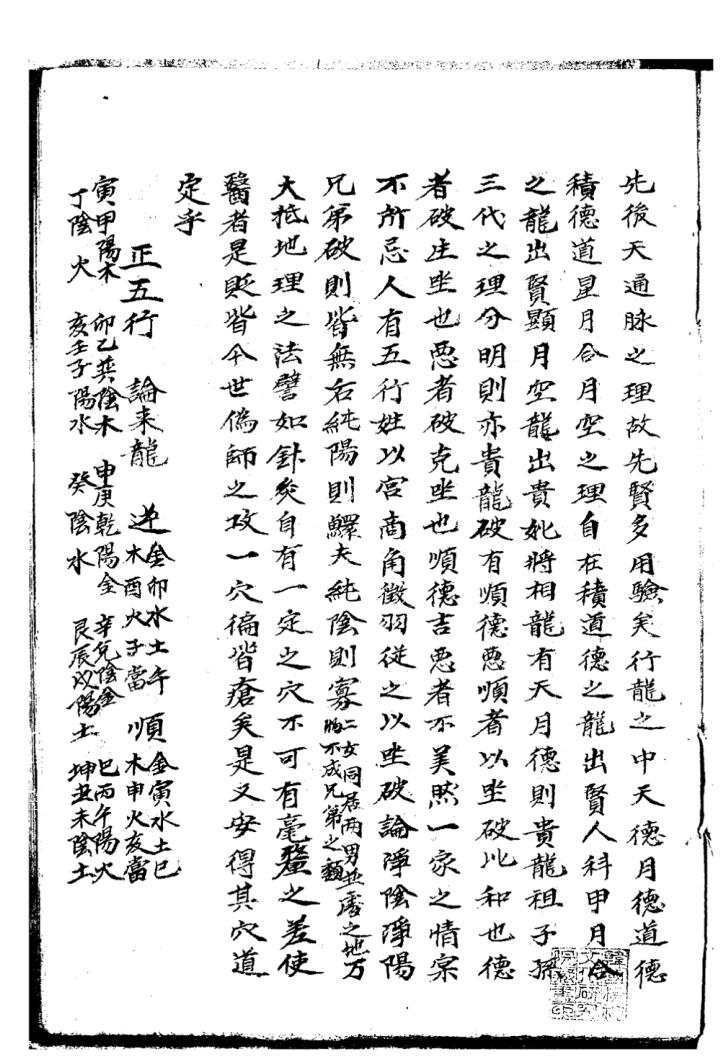 先後天通脉之理故先賢多用驗矣行龍之中天德月德道德
積德道星月合月空之理自在積道德之龍出賢人科甲月合
之龍出賢顯月空龍出貴妣將相龍有天月德則貴龍祖子孫
三代之理分明則亦貴龍破有順德悪順者以坐破比和也德
者破生坐也悪者破克坐也順德吉悪者不美然一家之情宗
不所忌人有五行姓以宮商角徵羽従之以坐破論淨陰淨陽
兄弟破則皆無后純陽則鰥夫純陰則寡二女同居两男並處之地万
物不成兄弟之類
大抵地理之法譬如針灸自有一定之穴不可有毫釐之差使
醫者是貶皆今世僞師之攻一穴徧皆瘡矣是又安得其穴道
定乎
正五行 論来龍 逆 金卯水土午 順 金寅水土巳
木酉火子當 木申火亥當
寅甲陽木 卯乙巽陰木 申庚乾陽金 辛兌陰金 巳丙午陽火
丁陰火 亥壬子陽水 癸陰水 艮辰戌陽土 坤丑未陰土